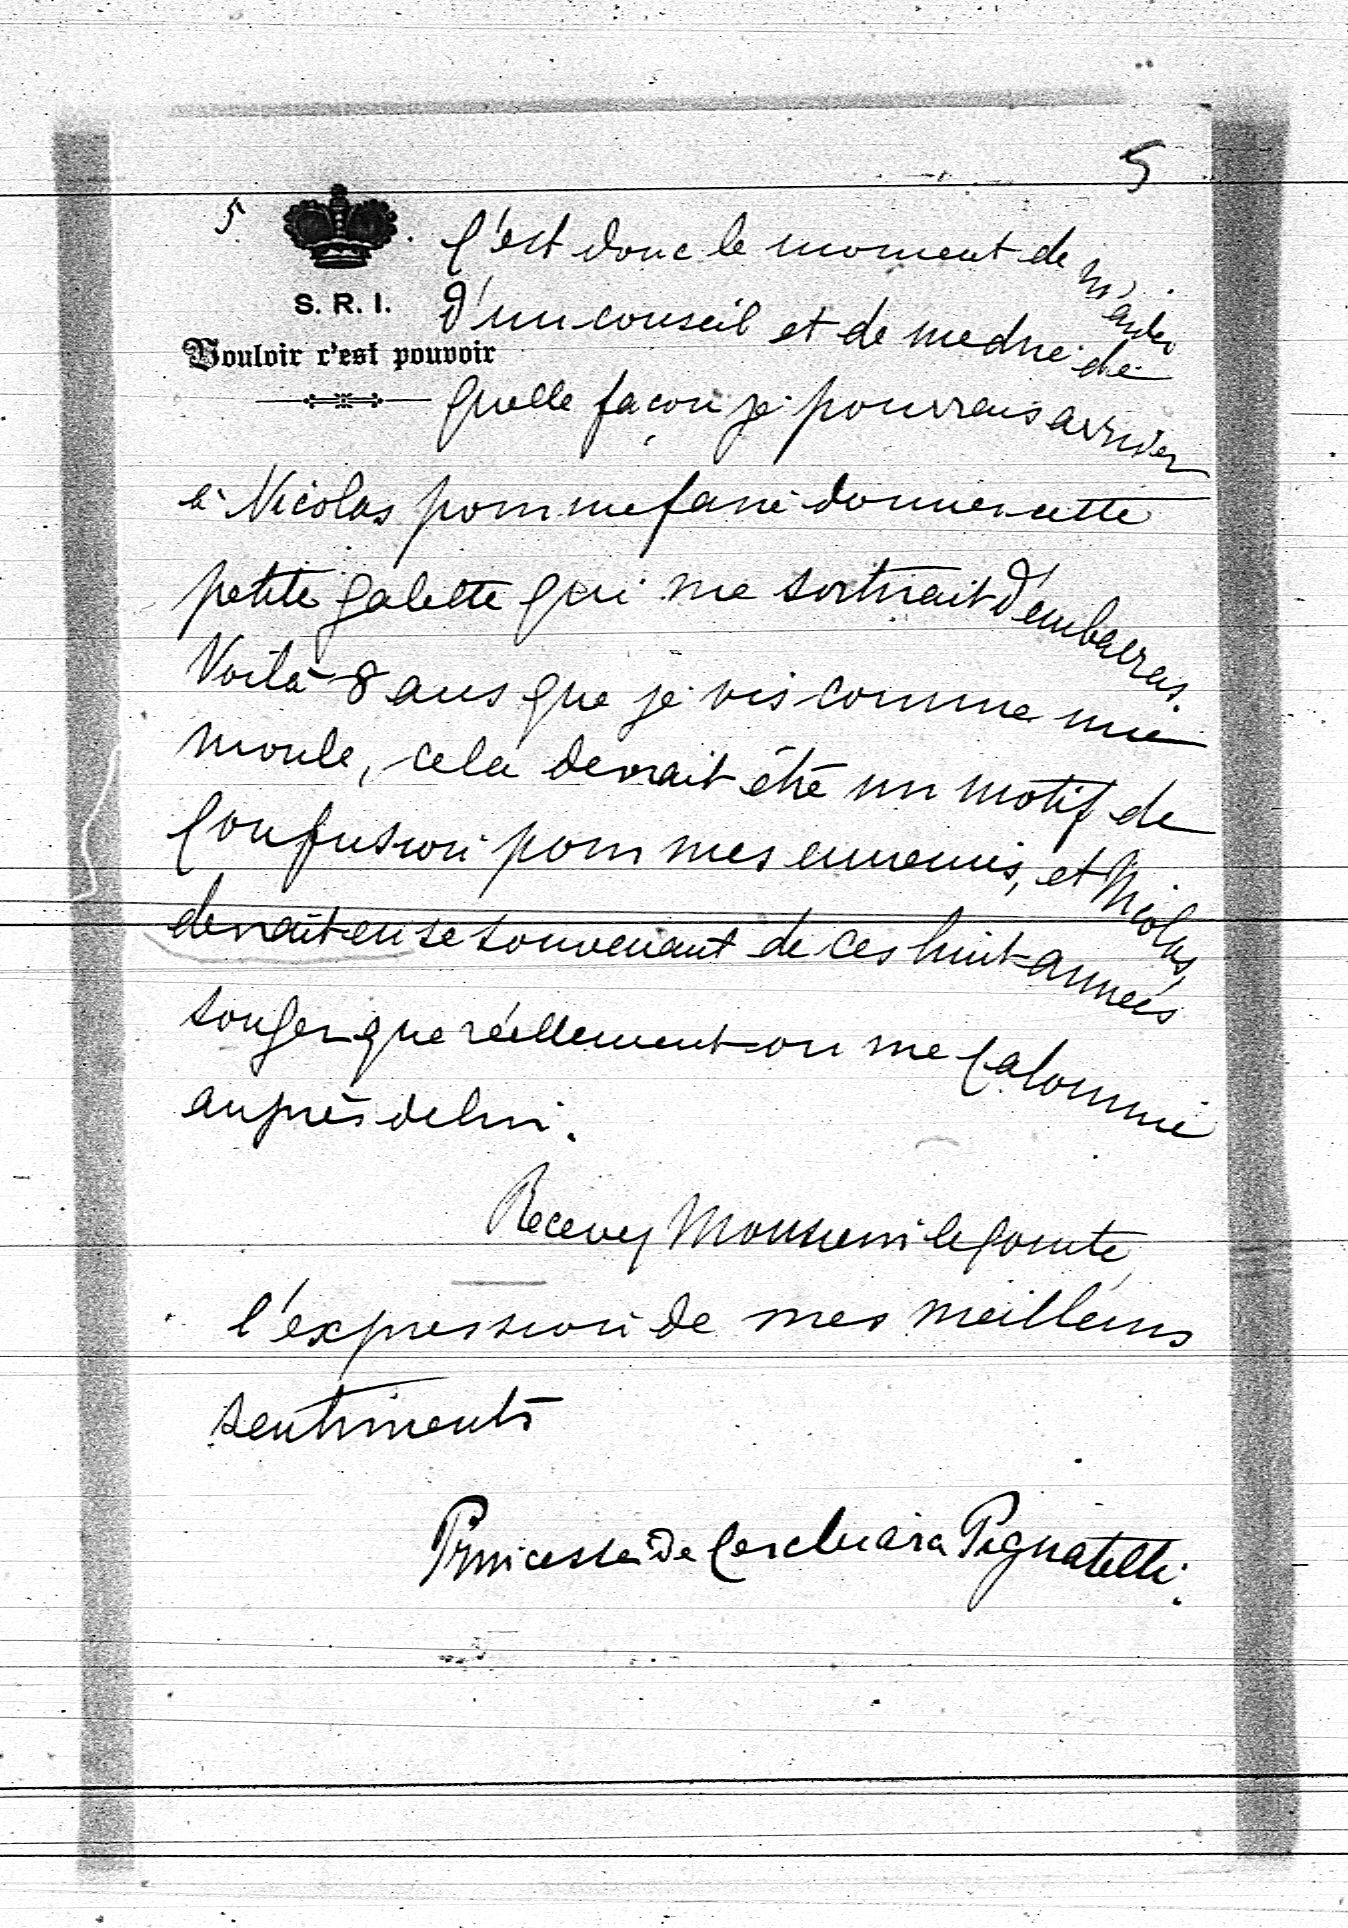 5
5.
S. R. I.
Vouloir c'est pouvoir
C'est donc le moment de m'aider
d'un conseil et de me dire de
quelle façon je pourrais arriver
à Nicolas pour me faire donner cette
petite galette qui me sortirait d'embarras.
Voilà 8 ans que je vis comme une
moule, cela devrait être un motif de
confusion pour mes ennemis, et Nicolas,
devrait en se souvenant de ces huit années
songer que réellement on me calomnie
auprès de lui.
Recevez Monsieur le Comte,
l'expression de mes meilleurs
sentiments
Princesse de Cerchiara Pignatelli.